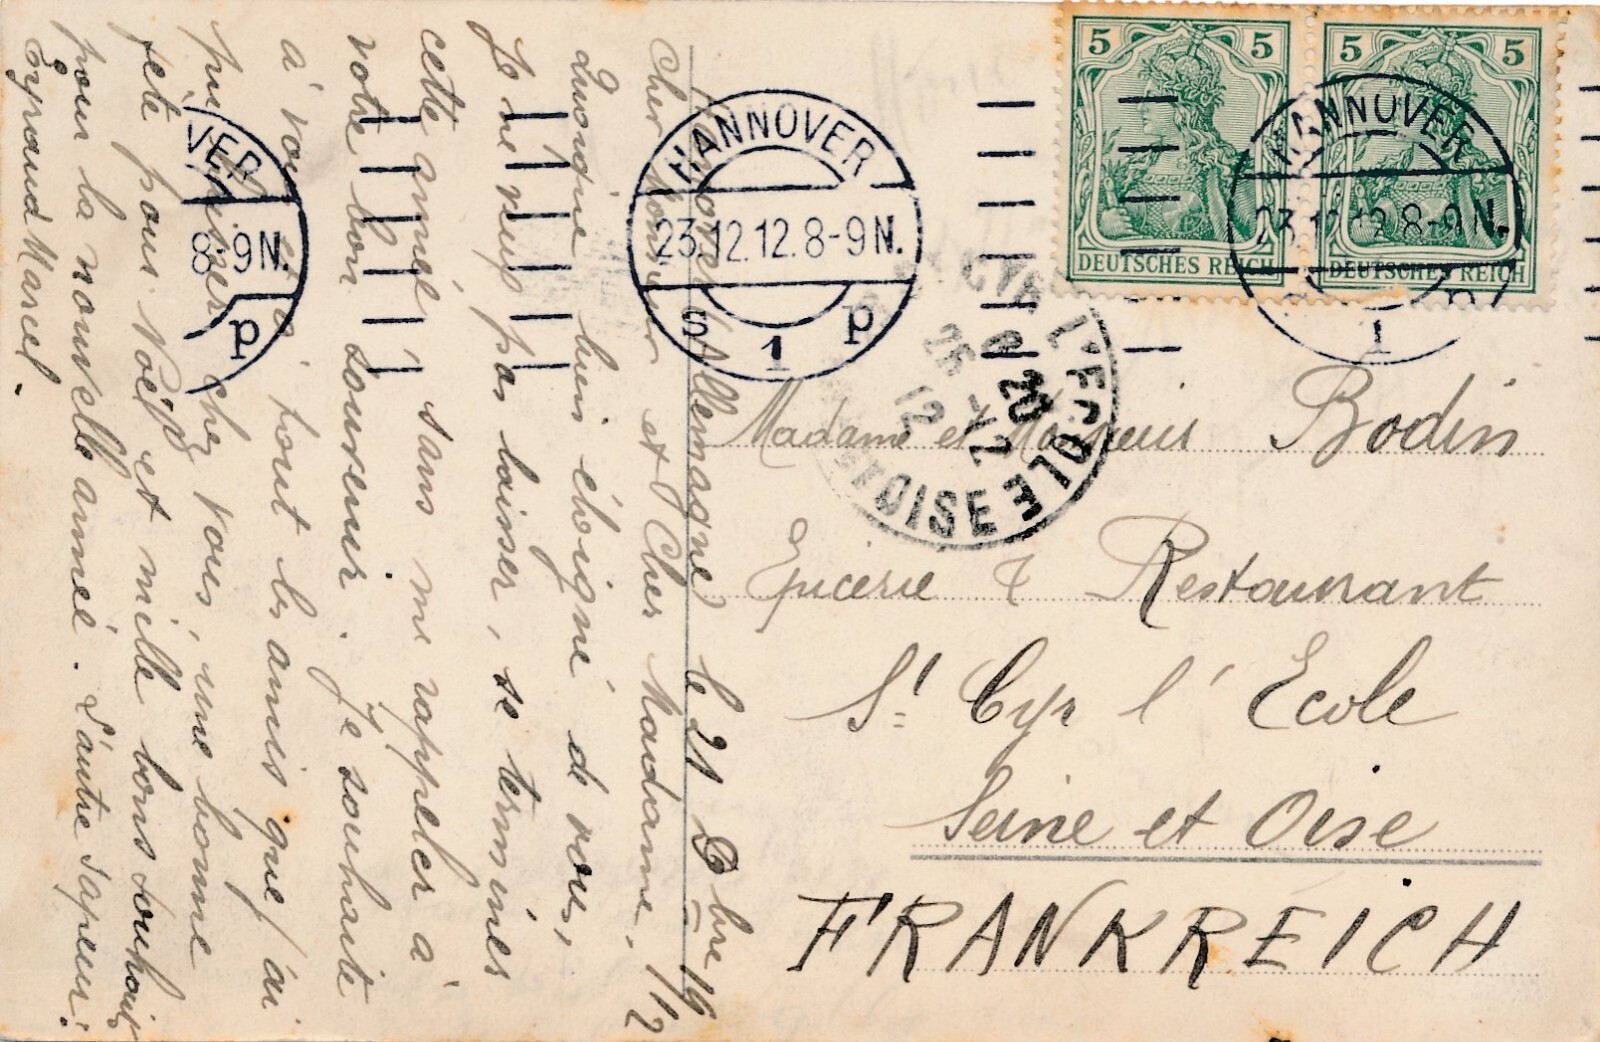 Hanovre (Allemagne) le 21 Dbre 1912
Cher Monsieur et Cher Madame,
Quoique bien éloigné de vous,
Je ne veux pas laisser, se terminer
cette année sans me rappeler à
votre bon souvenir. Je souhaite
à vous et à tout les amis que j'ai
pu laisser chez vous, une bonne
fête pour Noël et mille bons souhaits
pour la nouvelle année. L'autre Sapeur:
Eyraud Marcel.
5 5
DEUTSCHES REICH
5 5
DEUTSCHES REICH
VER
8-9N.
p
HANNOVER
23.12.12.8-9N.
s 1 p
HANNOVER
23.12.12.8-9N.
1 p
CYR L'ECOLE
20
25 -12
12
ET OISE
Madame et Monsieur Bodin
Epicerie & Restaurant
St Cyr l'Ecole
Seine et Oise
FRANKREICH